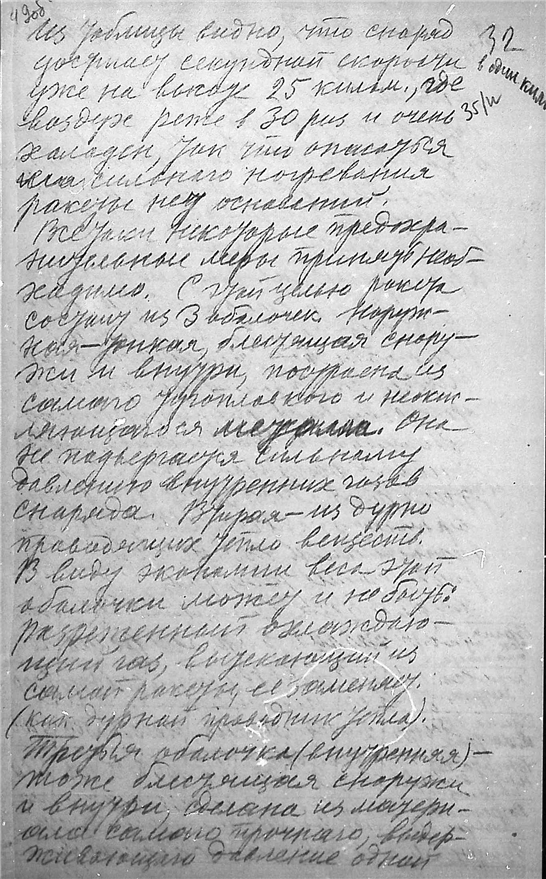 49об
Из таблицы видно, что снаряд 32
достигает секундной скорости в один килом
уже на высоте 25 килом., где 35/и
воздух реже в 30 раз и очень
холоден, так что опасаться
сильного нагревания
ракеты нет оснований.
Всетаки некоторые предохра-
нительные меры принять необ-
ходимо. С этой целью ракета
состоит из 3 оболочек. Наруж-
ная – тонкая, блестящая снару-
жи и внутри, построена из
самого тугоплавкого и неокис-
ляющагося металла. Она
не подвергается сильному
давлению внутренних газов
снаряда. Вторая – из дурно
проводящих тепло веществ.
В виду экономии веса этой
оболочки может и не быть:
разреженный охлаждаю-
щий газ, вытекающий из
самой ракеты, ее заменяет.
(как дурной проводник тепла).
Третья оболочка (внутренняя) –
тоже блестящая снаружи
и внутри, сделана из матери-
ала самого прочнаго, выдер-
живающаго давление одной